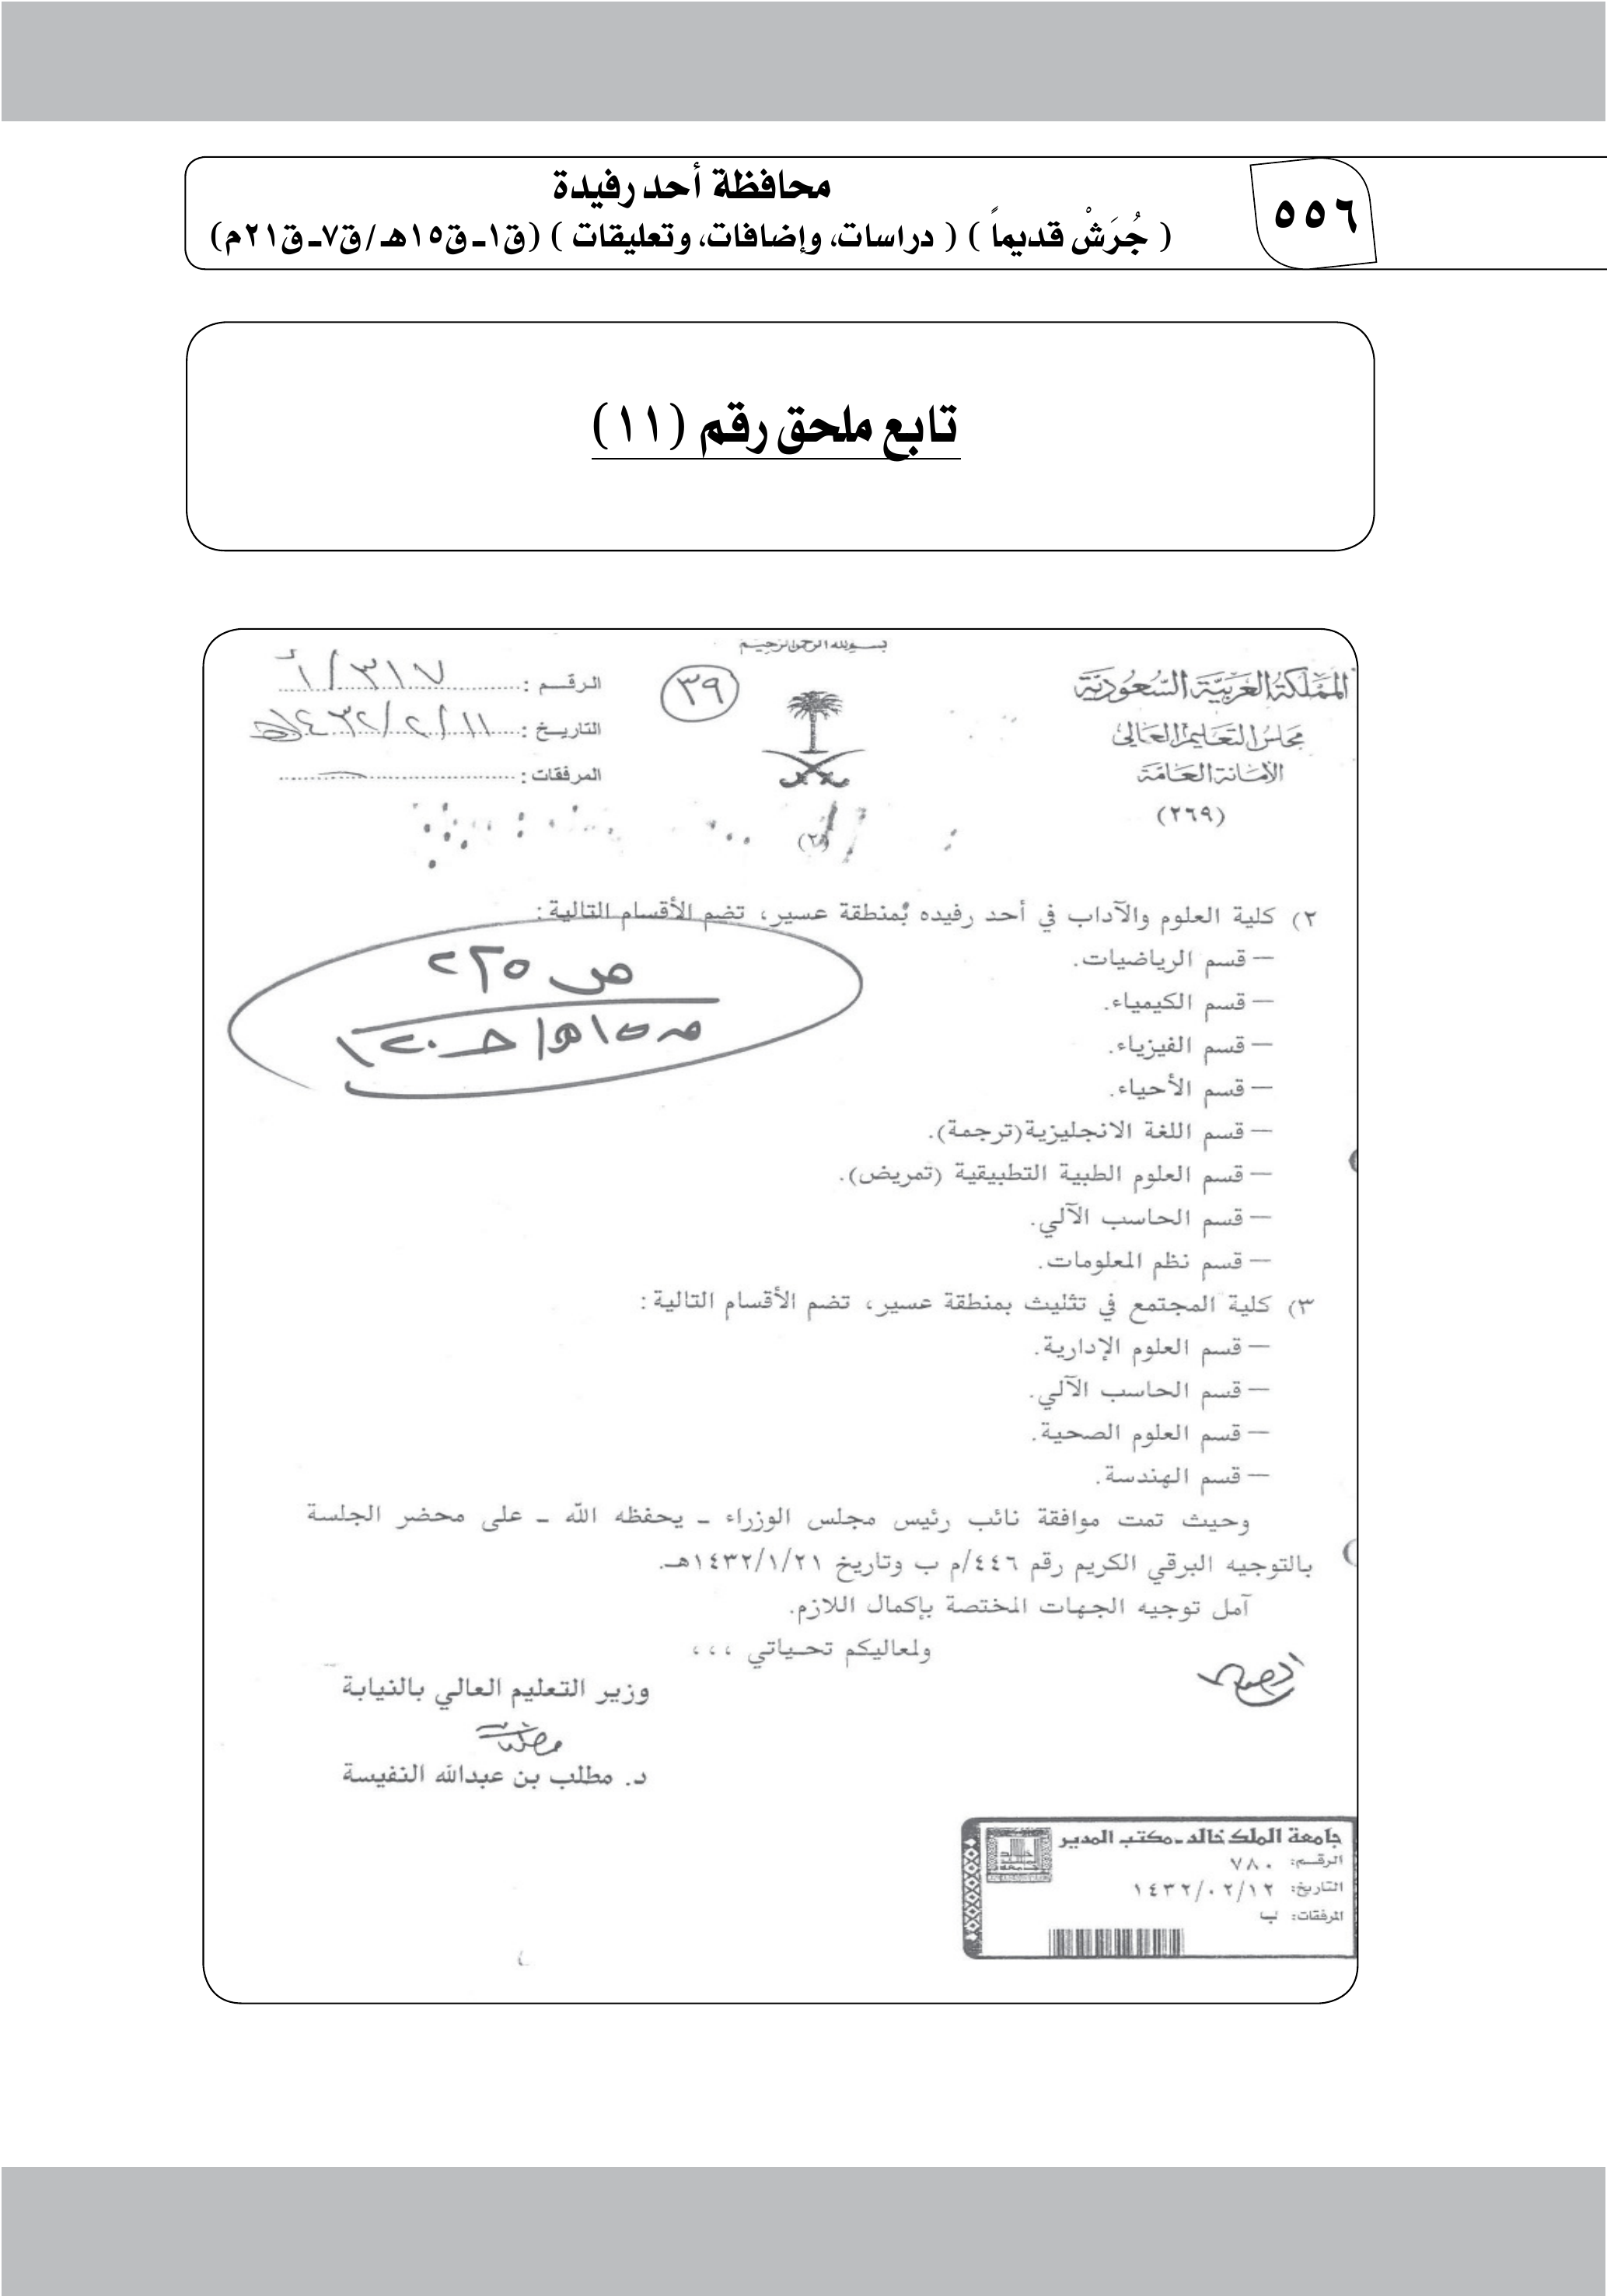 ٥٥٦
محافظة أحد رفيدة
( جُرَشْ قديماً ) ( دراسات، وإضافات، وتعليقات ) (ق١ـ ق١٥هـ / ق٧ـ ق٢١م)
تابع ملحق رقم (١١)
بسم الله الرحمن الرحيم
المملكة العربية السعودية
مجلس التعليم العالي
الأمانة العامة
(٢٦٩)
٣٩
الرقم :
٣١٧
التاريخ : ١٤٣٢/٢/١١هـ
المرفقات :
(٢)
٢) كلية العلوم والآداب في أحد رفيده بمنطقة عسير، تضم الأقسام التالية:
ص ٢٢٥
— قسم الرياضيات.
— قسم الكيمياء.
— قسم الفيزياء.
— قسم الأحياء.
— قسم اللغة الانجليزية(ترجمة).
— قسم العلوم الطبية التطبيقية (تمريض).
— قسم الحاسب الآلي.
— قسم نظم المعلومات.
٣) كلية المجتمع في تثليث بمنطقة عسير، تضم الأقسام التالية:
— قسم العلوم الإدارية.
— قسم الحاسب الآلي.
— قسم العلوم الصحية.
— قسم الهندسة.
وحيث تمت موافقة نائب رئيس مجلس الوزراء ـ يحفظه الله ـ على محضر الجلسة
بالتوجيه البرقي الكريم رقم ٤٤٦/م ب وتاريخ ١٤٣٢/١/٢١هـ.
آمل توجيه الجهات المختصة بإكمال اللازم.
ولمعاليكم تحياتي ،،،
وزير التعليم العالي بالنيابة
د. مطلب بن عبدالله النفيسة
جامعة الملك خالد - مكتب المدير
الرقم: ٧٨٠
التاريخ: ١٤٣٢/٠٢/١٢
المرفقات: ب